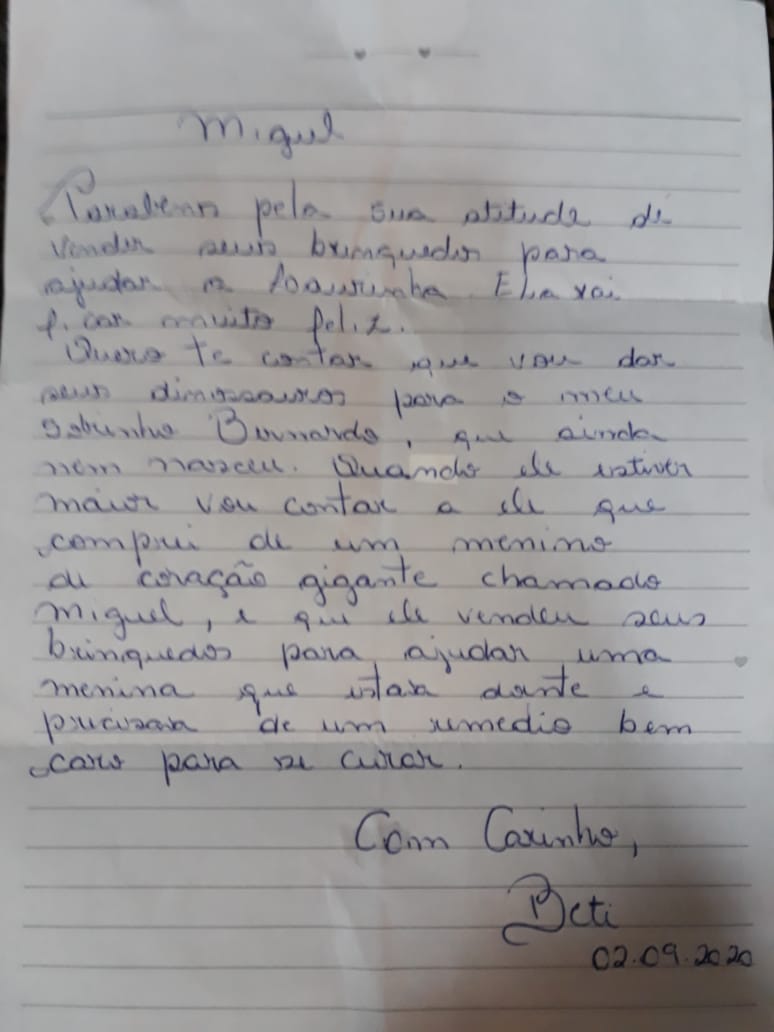 Miguel
Parabens pela sua atitude de
vender seus brinquedos para
ajudar a Laurinha. Ela vai
ficar muito feliz.
Quero te contar que vou dar
seus dinossauros para o meu
sobrinho Bernardo, que ainda
nem nasceu. Quando ele estiver
maior vou contar a ele que
comprei de um menino
de coração gigante chamado
Miguel, e que ele vendeu seus
brinquedos para ajudar uma
menina que estava doente e
precisava de um remedio bem
caro para se curar.
Com Carinho,
Beti
02.09.2020